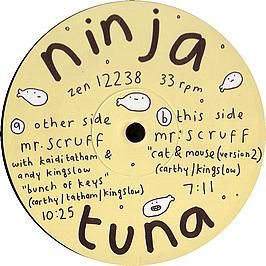 ninja
zen 12238 33 rpm
a other side
mr. scruff
with kaidi tatham &
andy kingslow
"bunch of keys"
(carthy/tatham/kingslow)
10:25
b this side
mr. scruff
"cat & mouse (version 2)
(carthy/kingslow)
7:11
tuna